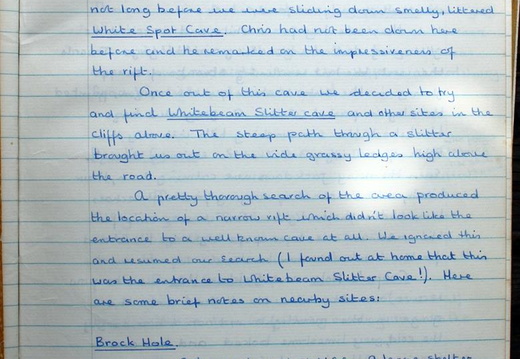 not long before we were sliding down smelly, littered
White Spot Cave. Chris had not been down here
before and he remarked on the impressiveness of
the rift.
Once out of this cave we decided to try
and find Whitebeam Slitter cave and other sites in the
cliffs above. The steep path through a slitter
brought us out on the wide grassy ledges high above
the road.
A pretty thorough search of the area produced
the location of a narrow rift which didn't look like the
entrance to a well known cave at all. We ignored this
and resumed our search (I found out at home that this
was the entrance to Whitebeam Slitter Cave!). Here
are some brief notes on nearby sites:
Brock Hole.